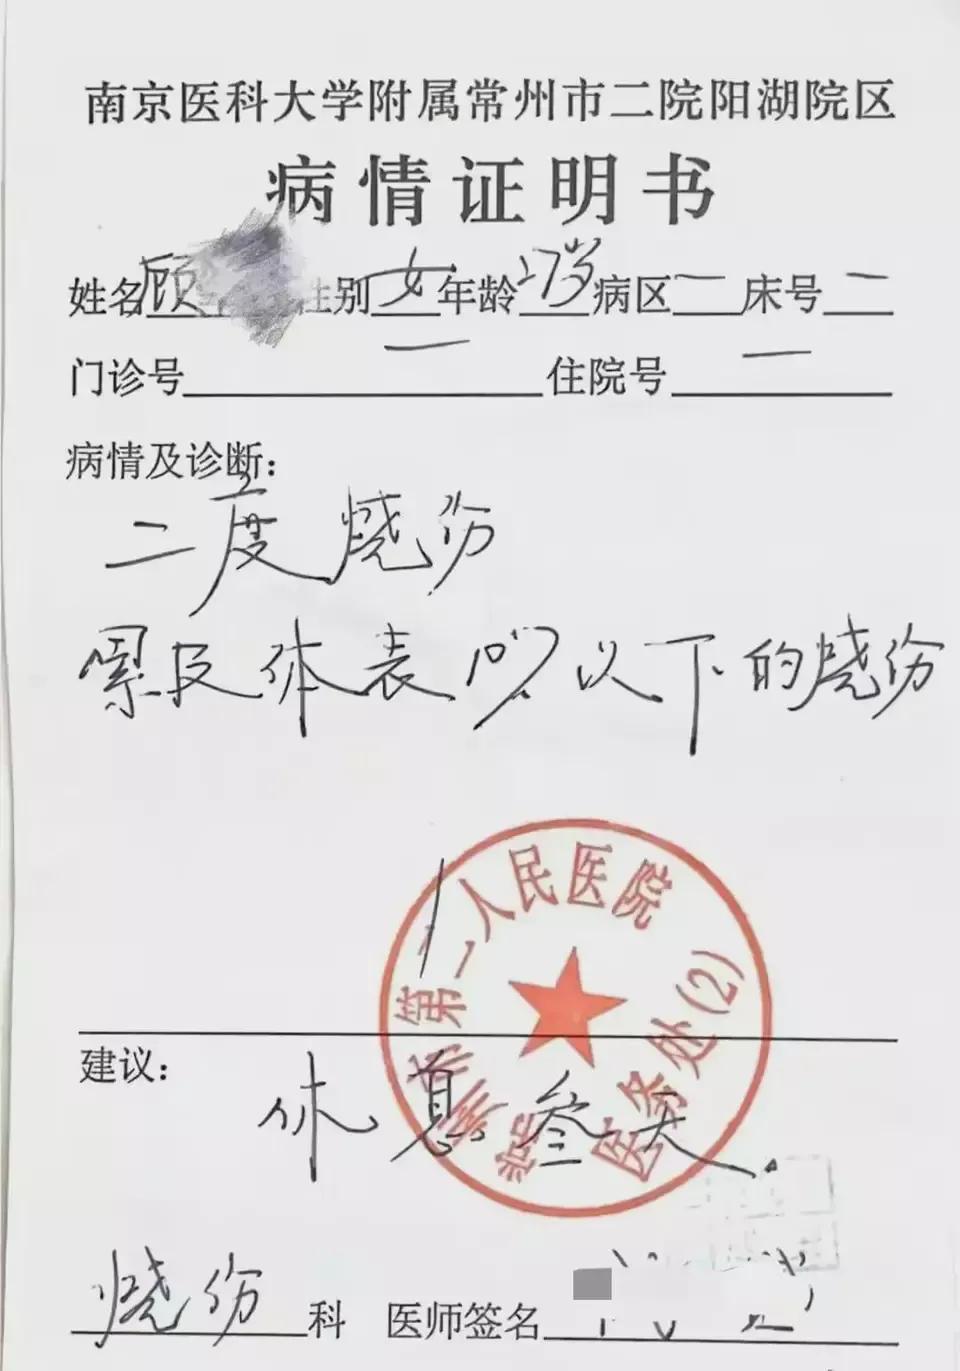 南京医科大学附属常州市二院阳湖院区
病情证明书
姓名顾 性别女年龄27岁病区一床号一
门诊号一 住院号一
病情及诊断:
二度烧伤
累及体表10%以下的烧伤
常州市第一人民医院
医务处(2)
建议:
休息叁天.
烧伤科 医师签名